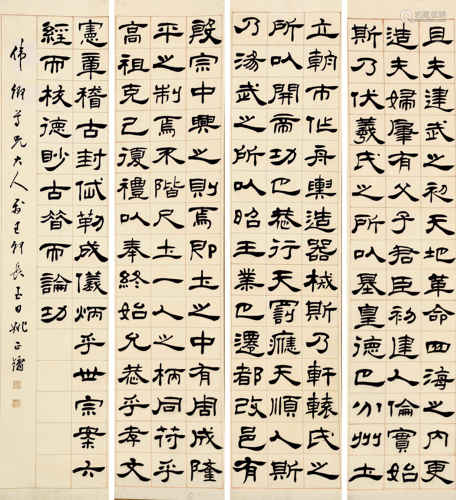 且夫建武之初天地革命四海之内更
造夫婦肇有父子君臣初建人倫實始
斯乃伏羲氏之所以基皇德也分州土
立朝市作舟輿造器械斯乃軒轅氏之
所以開帝功也恭行天罰應天順人斯
乃湯武之所以昭王業也遷都改邑有
殷宗中興之則焉即土之中有周成隆
平之制焉不階尺土一人之柄同符乎
高祖克己復禮以奉終始允恭乎孝文
憲章稽古封岱勒成儀炳乎世宗案六
經而校德眇古昔而論功
偉卿尊兄大人卯長至日姚正鏞